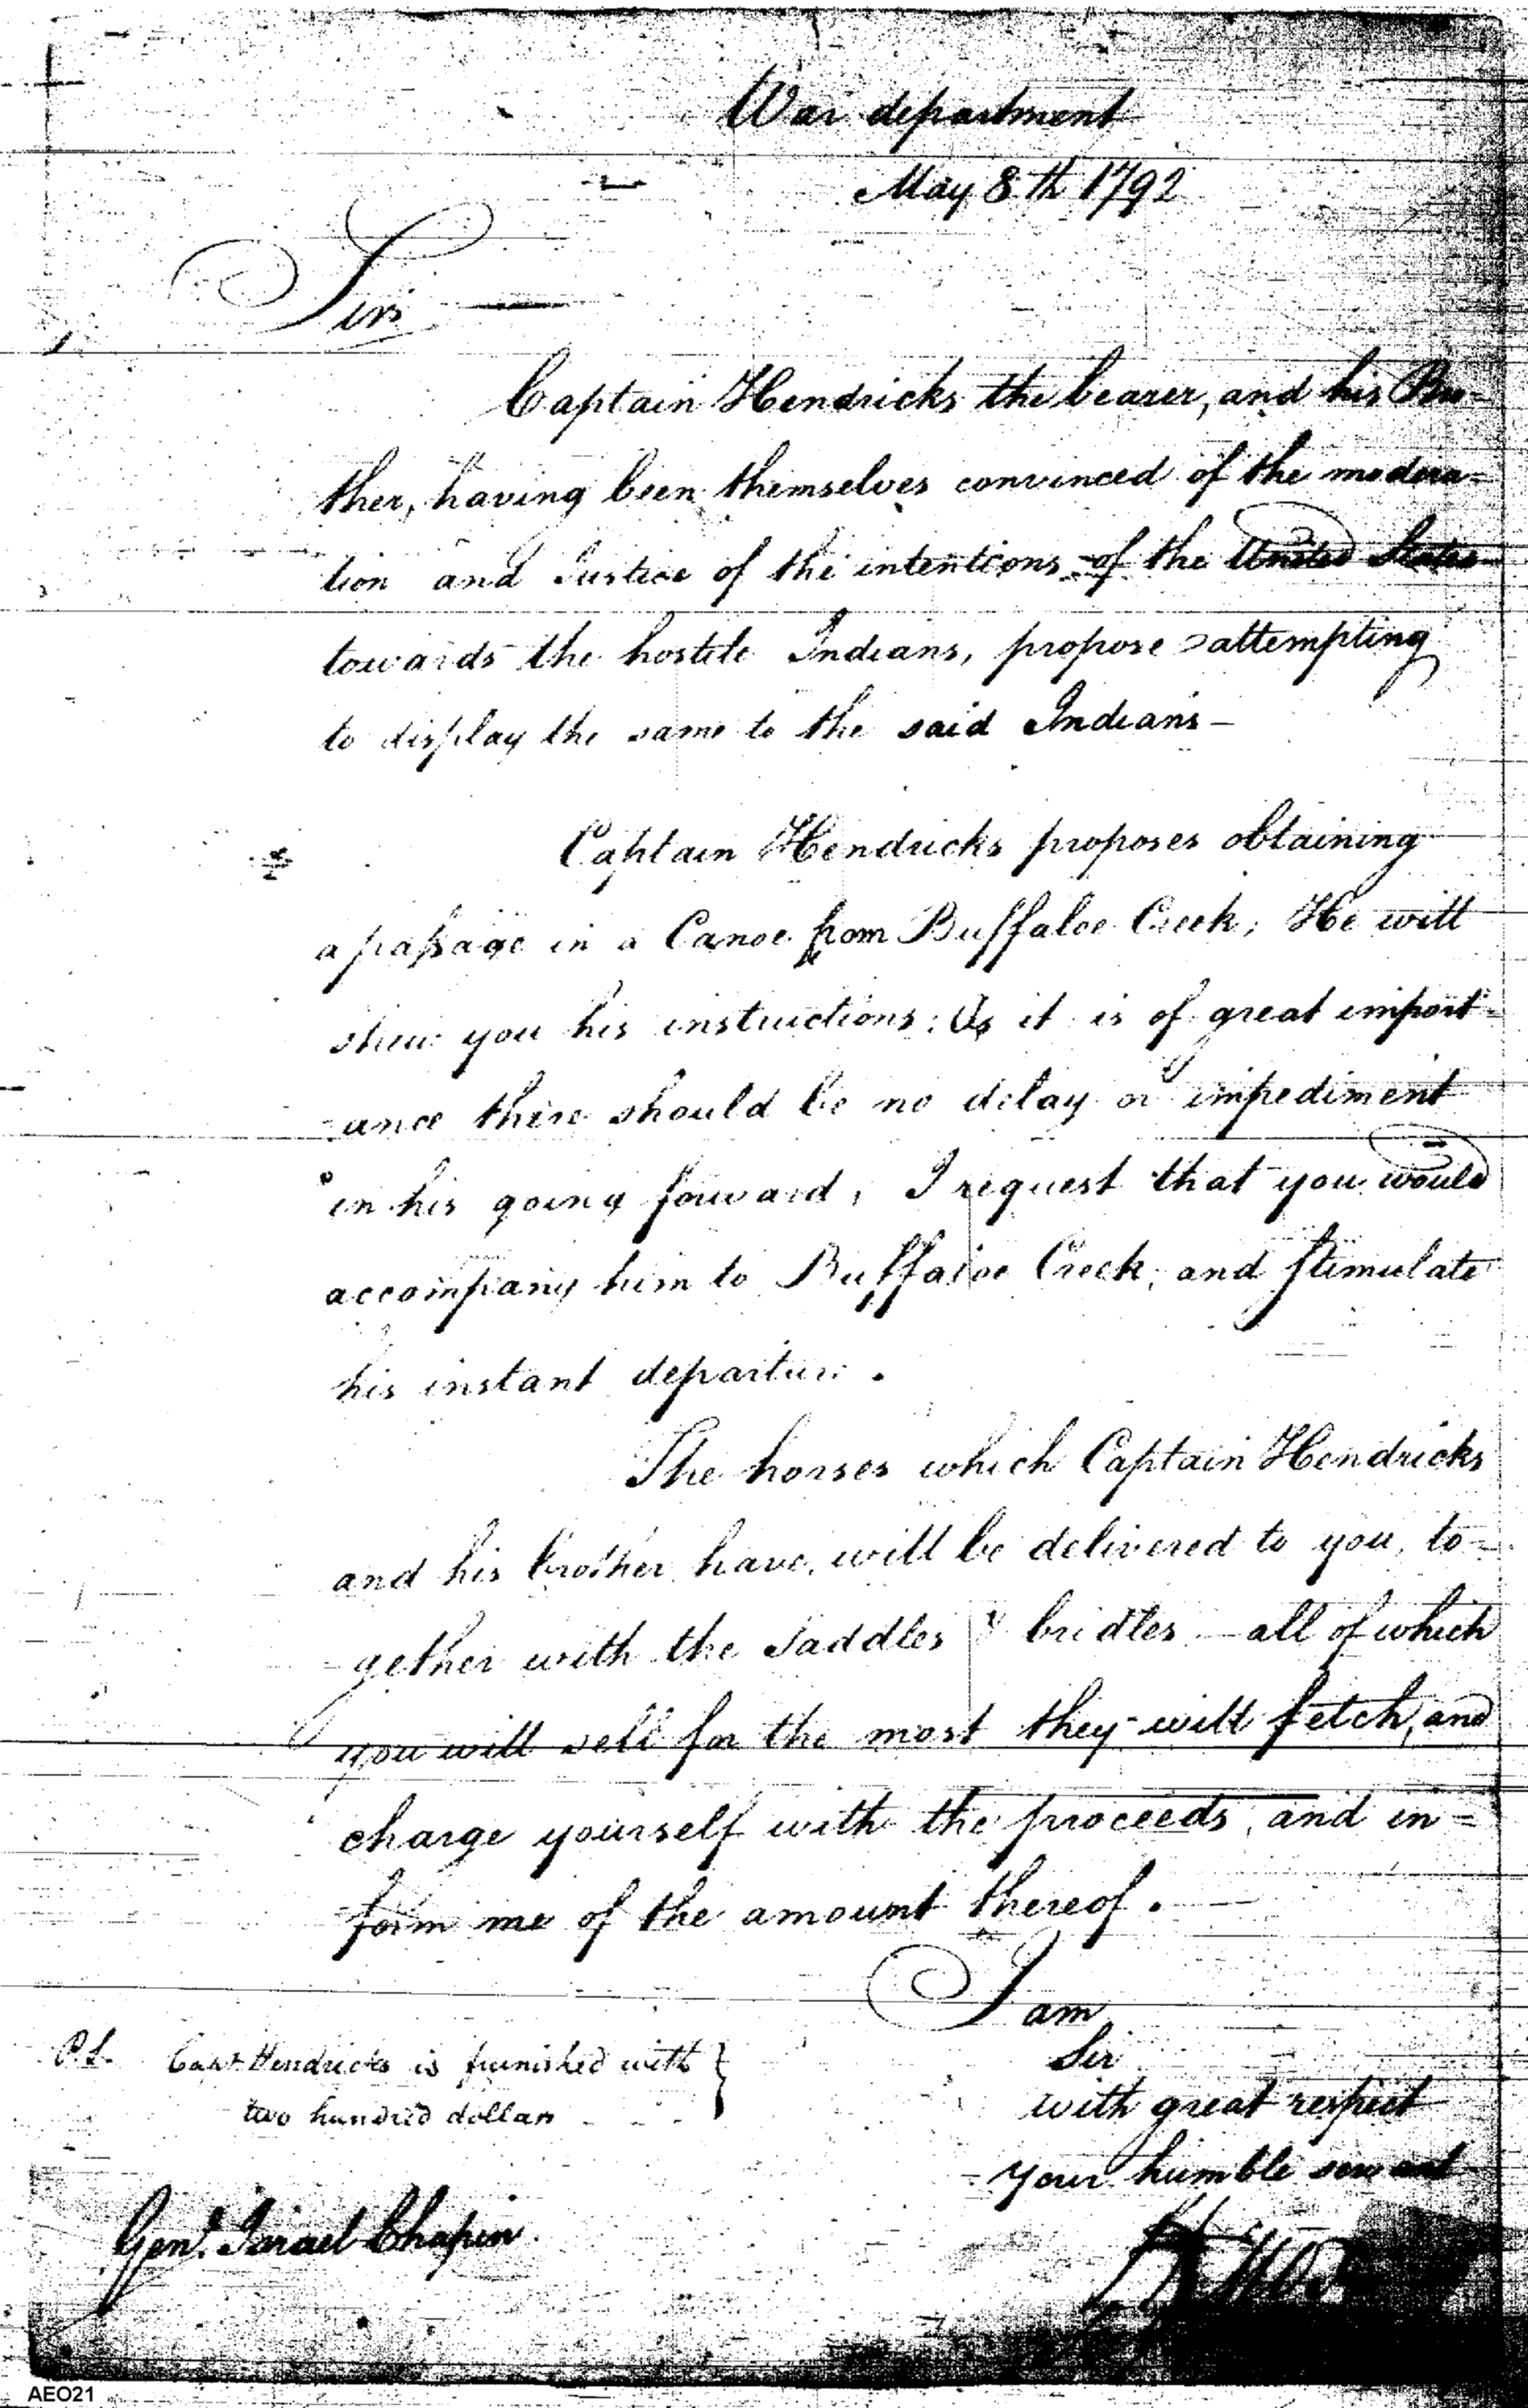 War department
May 8th 1792
Sir
Captain Hendricks the bearer, and his Bro-
ther, having been themselves convinced of the modera-
tion and Justice of the intentions of the United States
towards the hostile Indians, propose attempting
to display the same to the said Indians—
Captain Hendricks proposes obtaining
a passage in a Canoe from Buffaloe Creek; He will
shew you his instructions: As it is of great import-
ance there should be no delay or impediment
in his going forward, I request that you would
accompany him to Buffaloe Creek, and stimulate
his instant departure.
The horses which Captain Hendricks
and his brother have, will be delivered to you, to-
gether with the Saddles & bridles—all of which
you will sell for the most they will fetch, and
charge yourself with the proceeds, and in=
form me of the amount thereof.
I am
Sir
with great respect
your humble servant
P.S. Capt. Hendricks is furnished with
two hundred dollars
Genl. Israel Chapin
AEO21